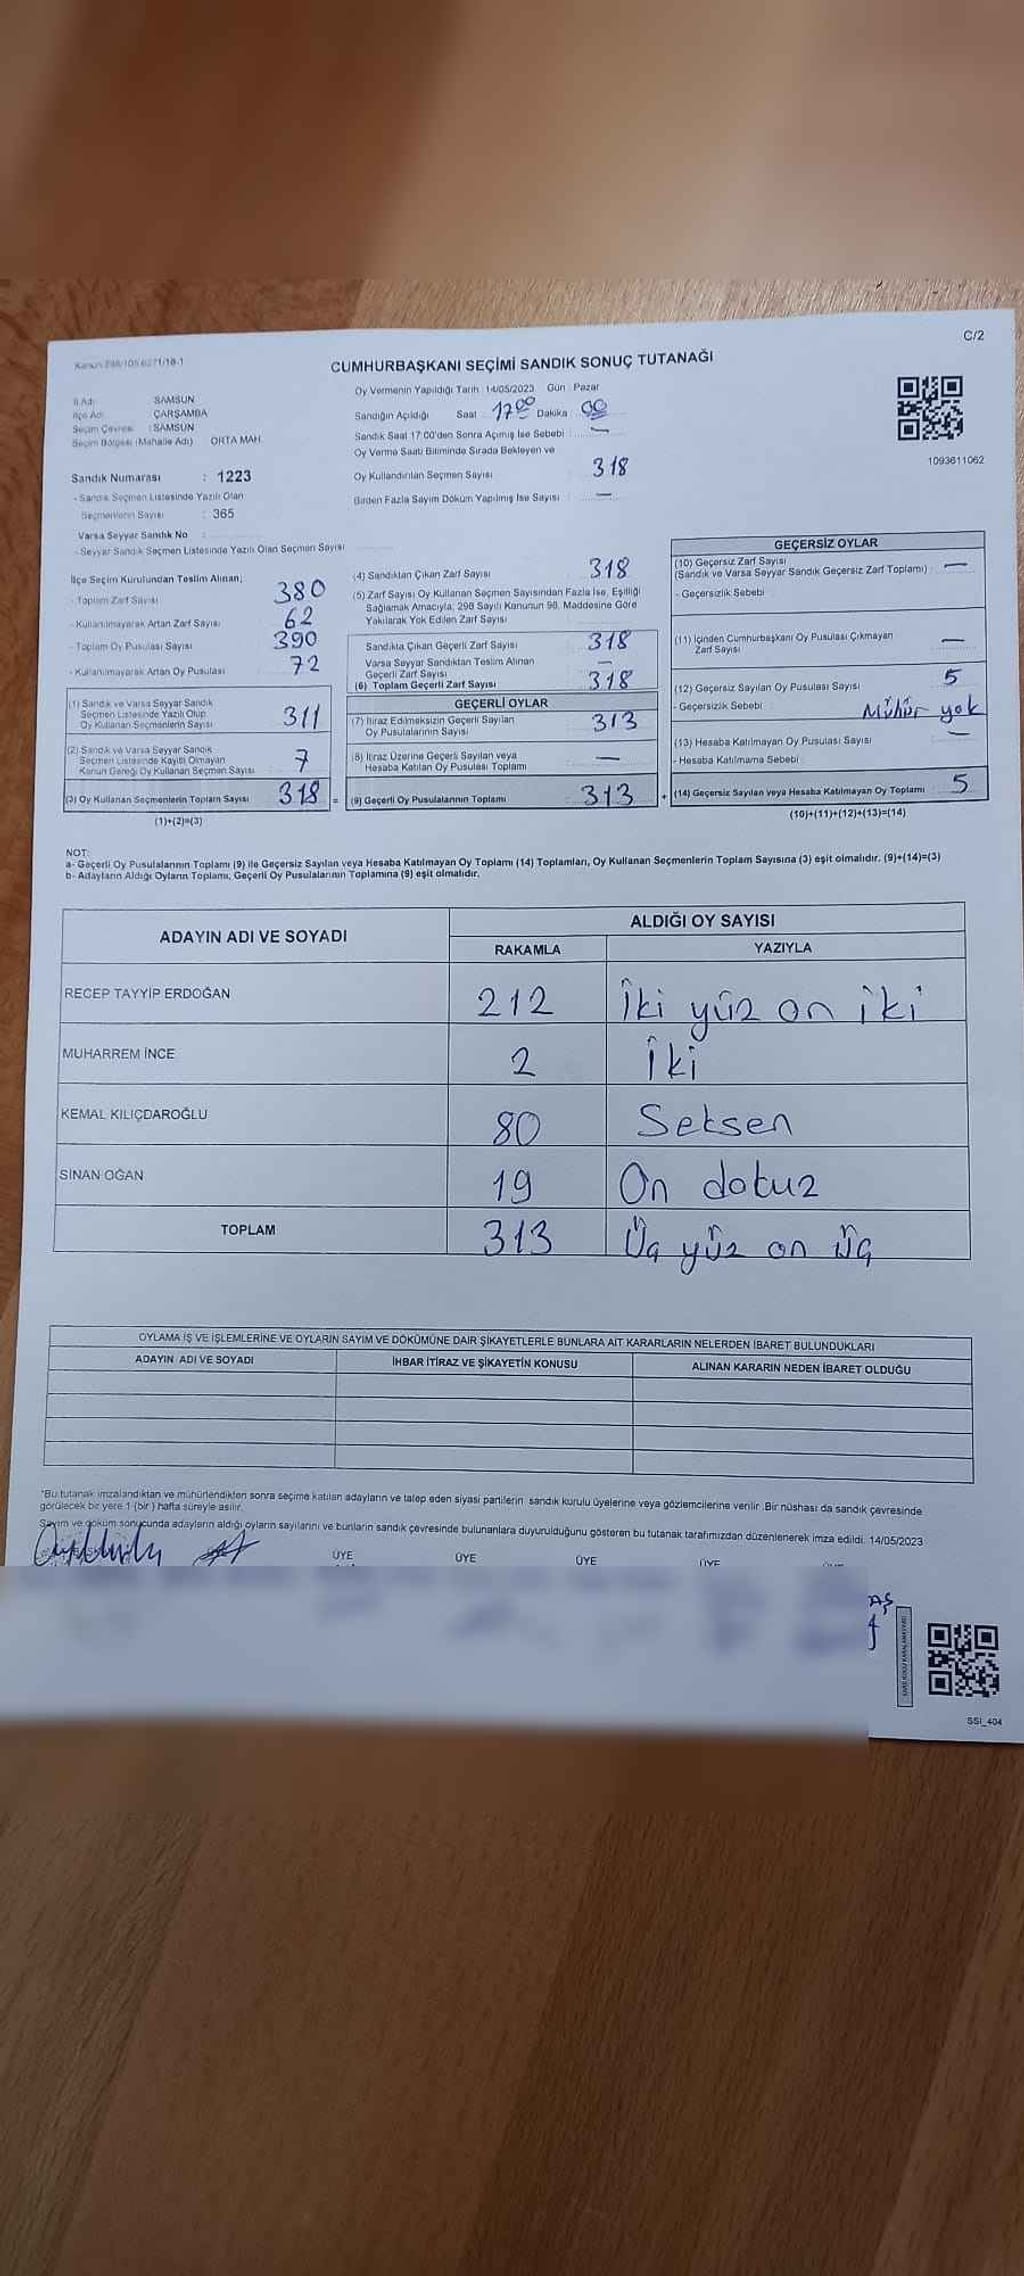 C/2
CUMHURBAŞKANI SEÇİMİ SANDIK SONUÇ TUTANAĞI
Oy Vermenin Yapıldığı Tarih : 14/05/2023 Gün : Pazar
İli Adı : SAMSUN
İlçe Adı : ÇARŞAMBA
Seçim Çevresi : SAMSUN
Seçim Bölgesi (Mahalle Adı) ORTA MAH.
Sandığın Açıldığı Saat 17 00 Dakika 00
Sandık Saat 17:00'den Sonra Açılmış İse Sebebi : —
Oy Verme Saati Bitiminde Sırada Bekleyen ve
Oy Kullandırılan Seçmen Sayısı 318
Birden Fazla Sayım Döküm Yapılmış İse Sayısı —
1093611062
Sandık Numarası : 1223
- Sandık Seçmen Listesinde Yazılı Olan
Seçmenlerin Sayısı : 365
Varsa Seyyar Sandık No :
- Seyyar Sandık Seçmen Listesinde Yazılı Olan Seçmen Sayısı
İlçe Seçim Kurulundan Teslim Alınan;
- Toplam Zarf Sayısı 380
- Kullanılmayarak Artan Zarf Sayısı 62
- Toplam Oy Pusulası Sayısı 390
- Kullanılmayarak Artan Oy Pusulası 72
(1) Sandık ve Varsa Seyyar Sandık
Seçmen Listesinde Yazılı Olup
Oy Kullanan Seçmenlerin Sayısı 311
(2) Sandık ve Varsa Seyyar Sandık
Seçmen Listesinde Kayıtlı Olmayan
Kanun Gereği Oy Kullanan Seçmen Sayısı 7
(3) Oy Kullanan Seçmenlerin Toplam Sayısı 318 =
(1)+(2)=(3)
(4) Sandıktan Çıkan Zarf Sayısı 318
(5) Zarf Sayısı Oy Kullanan Seçmen Sayısından Fazla İse, Eşitliği
Sağlamak Amacıyla; 298 Sayılı Kanunun 98. Maddesine Göre
Yakılarak Yok Edilen Zarf Sayısı
Sandıkta Çıkan Geçerli Zarf Sayısı 318
Varsa Seyyar Sandıktan Teslim Alınan
Geçerli Zarf Sayısı —
(6) Toplam Geçerli Zarf Sayısı 318
GEÇERLİ OYLAR
(7) İtiraz Edilmeksizin Geçerli Sayılan
Oy Pusulalarının Sayısı 313
(8) İtiraz Üzerine Geçerli Sayılan veya
Hesaba Katılan Oy Pusulası Toplamı —
(9) Geçerli Oy Pusulalarının Toplamı 313 +
GEÇERSİZ OYLAR
(10) Geçersiz Zarf Sayısı
(Sandık ve Varsa Seyyar Sandık Geçersiz Zarf Toplamı) : —
- Geçersizlik Sebebi
(11) İçinden Cumhurbaşkanı Oy Pusulası Çıkmayan
Zarf Sayısı —
(12) Geçersiz Sayılan Oy Pusulası Sayısı 5
- Geçersizlik Sebebi Mühür yok
(13) Hesaba Katılmayan Oy Pusulası Sayısı —
- Hesaba Katılmama Sebebi
(14) Geçersiz Sayılan veya Hesaba Katılmayan Oy Toplamı 5
(10)+(11)+(12)+(13)=(14)
NOT:
a- Geçerli Oy Pusulalarının Toplamı (9) ile Geçersiz Sayılan veya Hesaba Katılmayan Oy Toplamı (14) Toplamları, Oy Kullanan Seçmenlerin Toplam Sayısına (3) eşit olmalıdır. (9)+(14)=(3)
b- Adayların Aldığı Oyların Toplamı, Geçerli Oy Pusulalarının Toplamına (9) eşit olmalıdır.
ADAYIN ADI VE SOYADI ALDIĞI OY SAYISI
RAKAMLA YAZIYLA
RECEP TAYYİP ERDOĞAN 212 İki yüz on iki
MUHARREM İNCE 2 İki
KEMAL KILIÇDAROĞLU 80 Seksen
SİNAN OĞAN 19 On dokuz
TOPLAM 313 Üç yüz on üç
OYLAMA İŞ VE İŞLEMLERİNE VE OYLARIN SAYIM VE DÖKÜMÜNE DAİR ŞİKAYETLERLE BUNLARA AİT KARARLARIN NELERDEN İBARET BULUNDUKLARI
ADAYIN ADI VE SOYADI İHBAR İTİRAZ VE ŞİKAYETİN KONUSU ALINAN KARARIN NEDEN İBARET OLDUĞU
*Bu tutanak imzalandıktan ve mühürlendikten sonra seçime katılan adayların ve talep eden siyasi partilerin sandık kurulu üyelerine veya gözlemcilerine verilir. Bir nüshası da sandık çevresinde
görülecek bir yere 1 (bir) hafta süreyle asılır.
Sayım ve döküm sonucunda adayların aldığı oyların sayılarını ve bunların sandık çevresinde bulunanlara duyurulduğunu gösteren bu tutanak tarafımızdan düzenlenerek imza edildi. 14/05/2023
ÜYE ÜYE ÜYE ÜYE
SSI_404